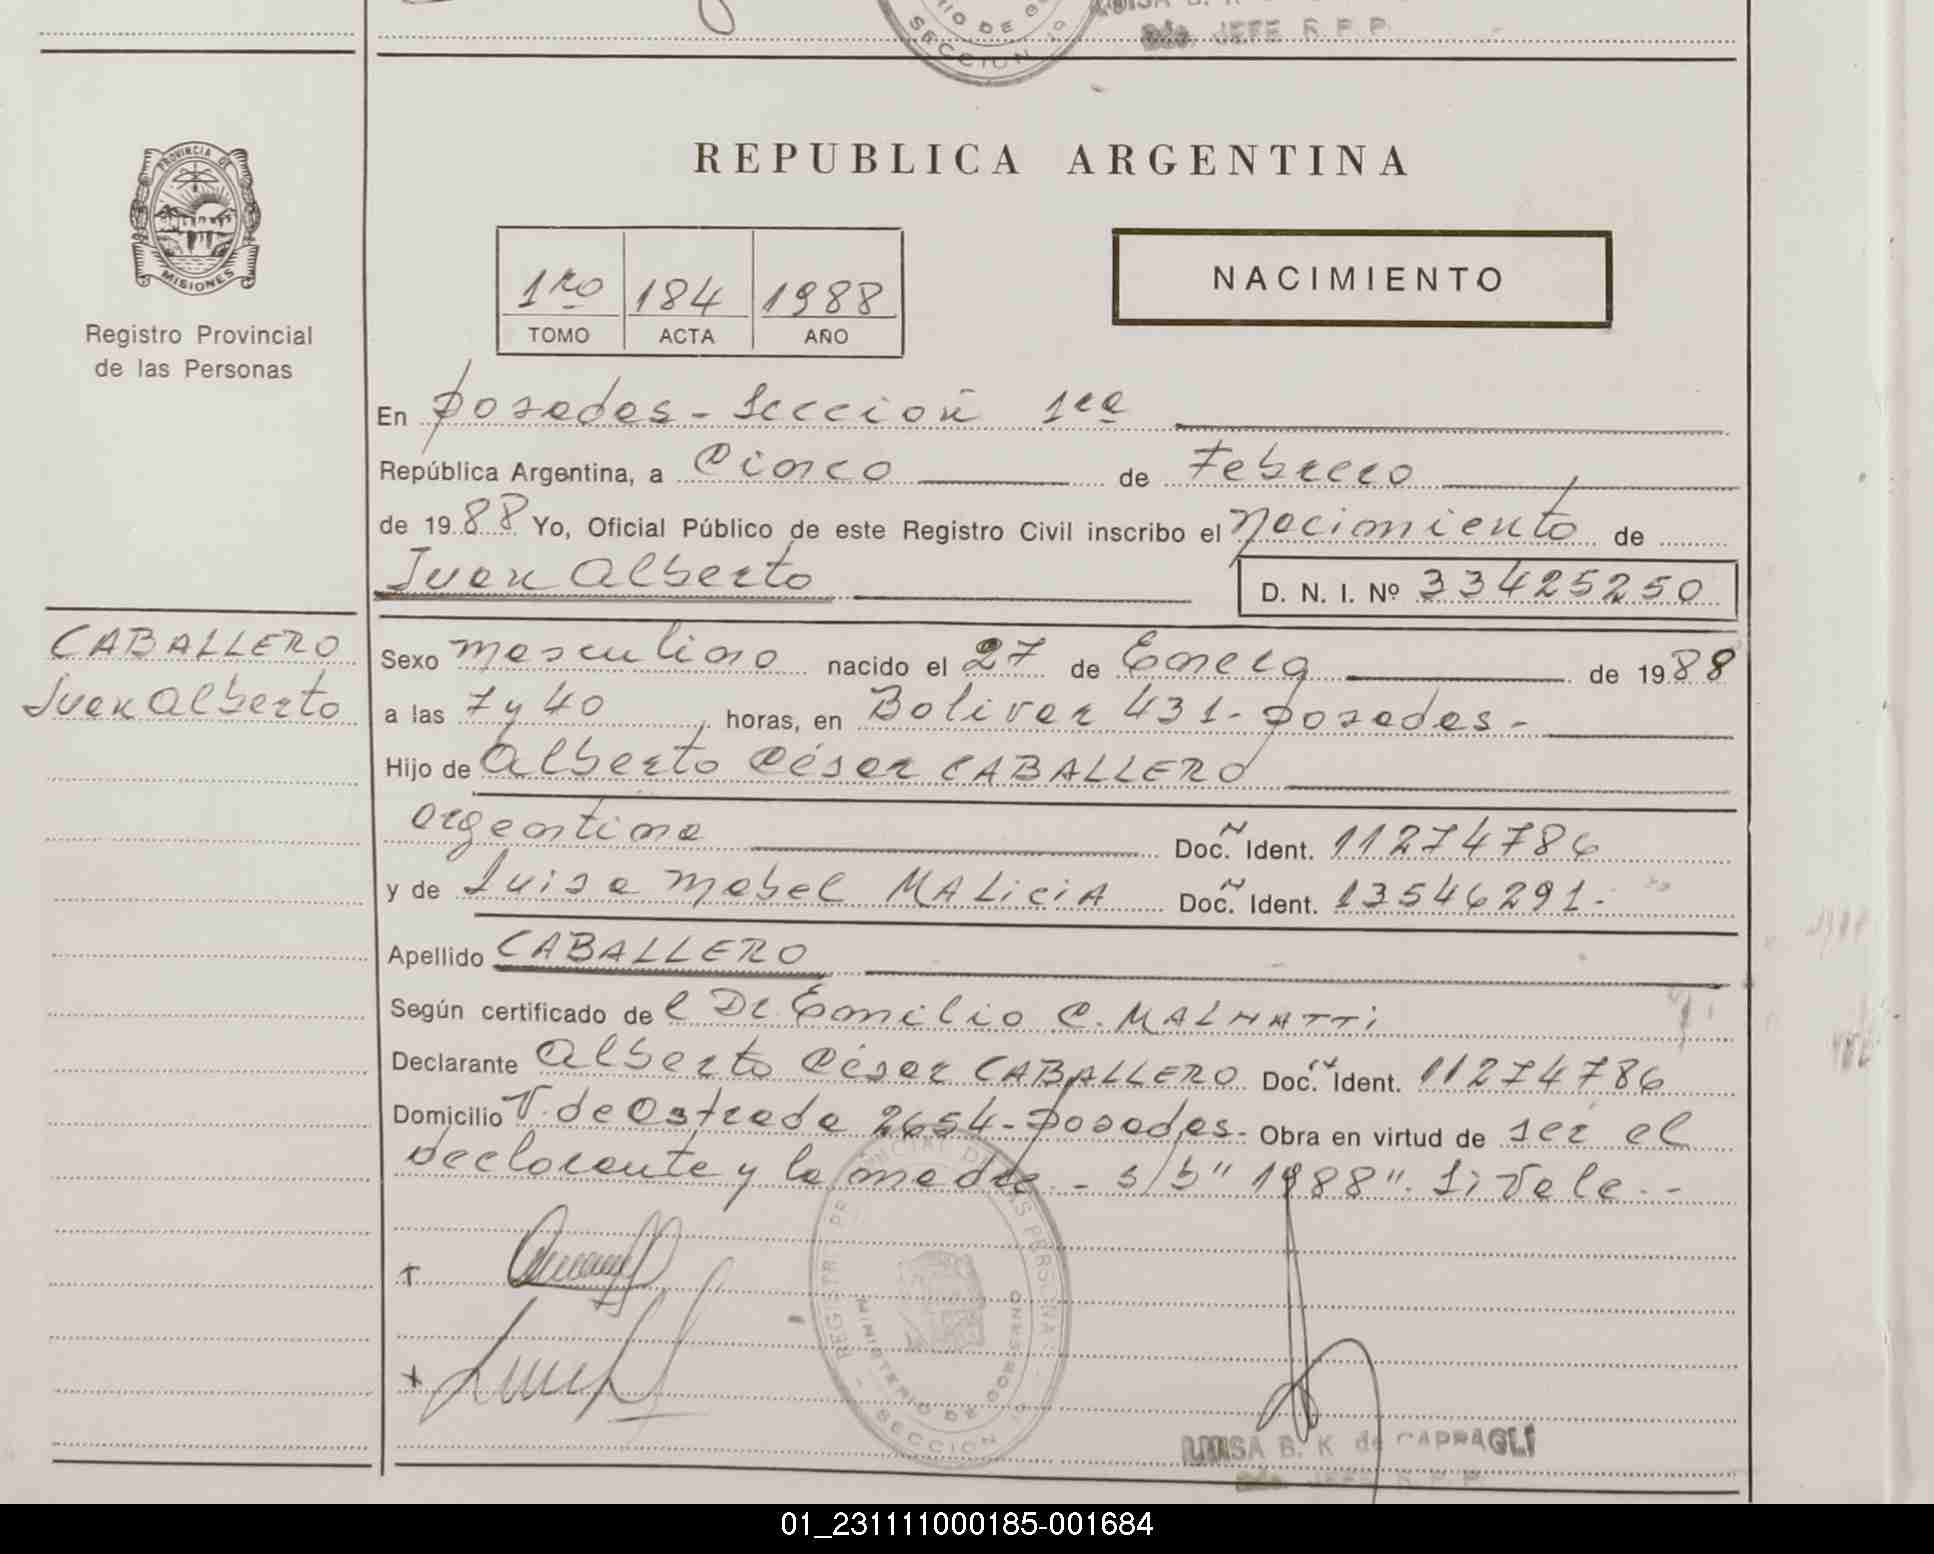 SECCION 1º
Bdo. JEFE R.P.P.
PROVINCIA DE
MISIONES
Registro Provincial
de las Personas
REPUBLICA ARGENTINA
1ro 184 1988
TOMO ACTA AÑO
NACIMIENTO
En Posadas - Sección 1ra
República Argentina, a Cinco de Febrero
de 1988 Yo, Oficial Público de este Registro Civil inscribo el Nacimiento de
Juan Alberto D. N. I. Nº 33425250
CABALLERO
Juan Alberto
Sexo masculino nacido el 27 de Enero de 1988
a las 7 y 40 horas, en Bolivar 431 - Posadas -
Hijo de Alberto César CABALLERO
argentino Doc. Ident. 11274786
y de Luisa Mabel MALICIA Doc. Ident. 13546291.-
Apellido CABALLERO
Según certificado del Dr. Emilio C. MALNATTI
Declarante Alberto César CABALLERO Doc. Ident. 11274786
Domicilio V. de Ostrada 2654 - Posadas - Obra en virtud de ser el
declarante y la madre - s/b "1988". Si Vale. -
REGISTRO PROVINCIAL DE LAS PERSONAS
MINISTERIO DE GOBIERNO
SECCION 1º
LUISA B. K. de CAPRAGLI
Bdo. JEFE R.P.P.
01_231111000185-001684